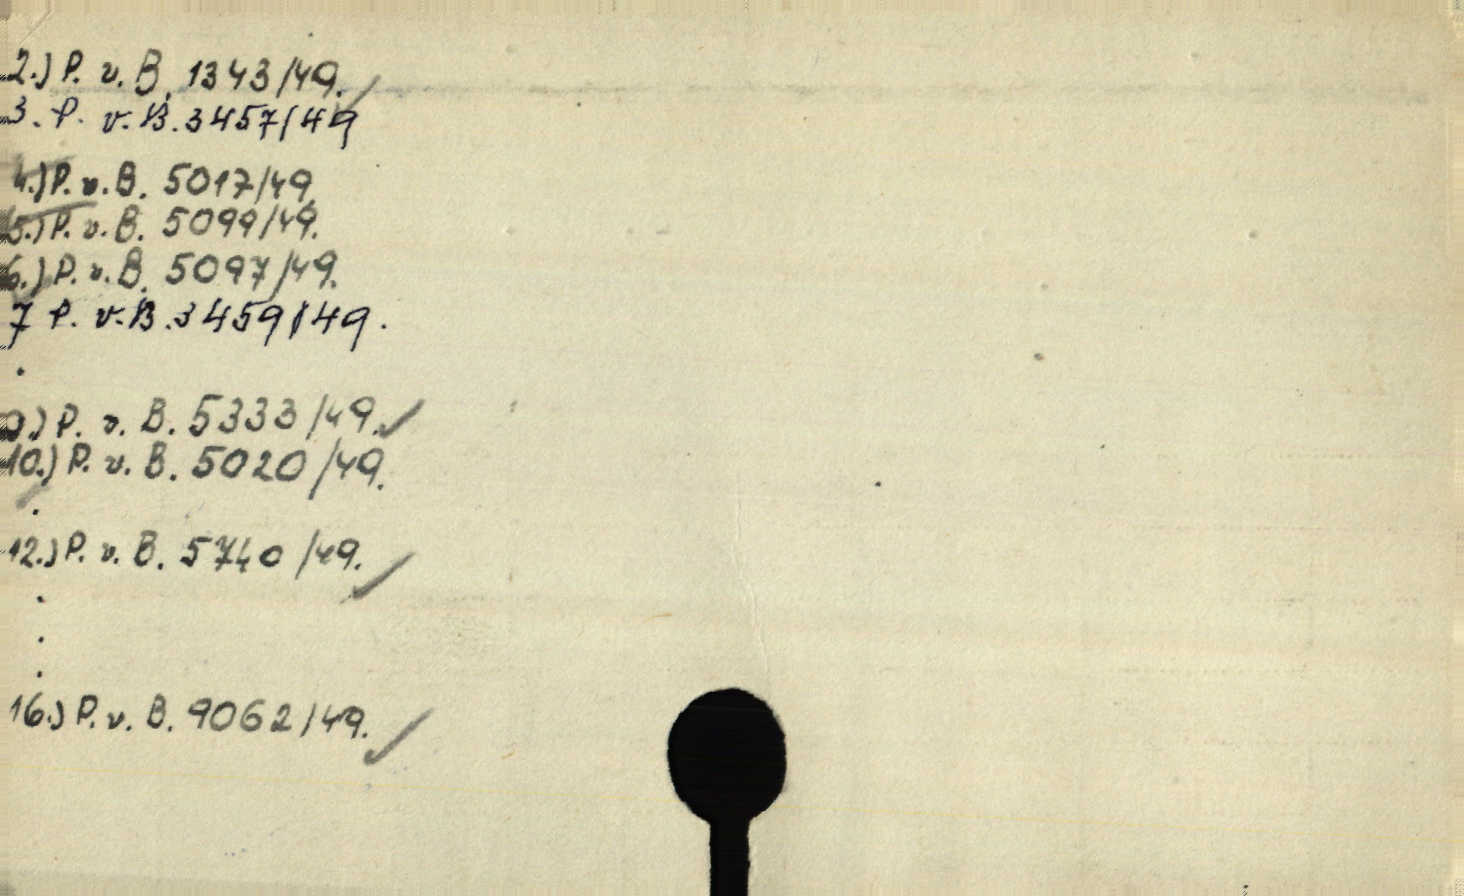 2.) P. v. B. 1343/49.
3. P. v. B. 3457/49
4.) P. v. B. 5017/49.
5.) P. v. B. 5099/49.
6.) P. v. B. 5097/49.
7 P. v. B. 3459/49.
.
9.) P. v. B. 5333/49. ✓
10.) P. v. B. 5020/49.
.
12.) P. v. B. 5740/49. ✓
.
.
.
16.) P. v. B. 9062/49. ✓